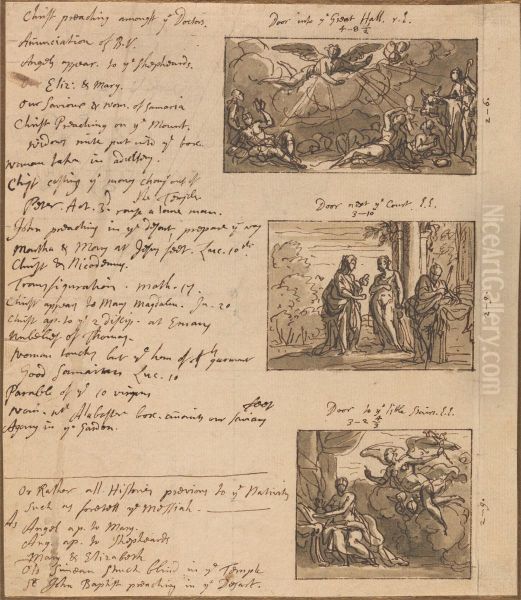 Christ preaching amongst ye Doctors.
Anunciation of B.V.
Angels appear to ye Shepheards.
Eliz: & Mary.
Our Saviour & wom. of Samaria
Christ Preaching on ye Mount.
widows mite put into ye box.
woman taken in adultery.
Christ casting ye mony chang. out of
the Temple
Peter. Act. 3d. rays a lame man.
John preaching in ye desart, prepare ye way
Martha & Mary at Jesus feet. Luc. 10th
Christ & Nicodemus.
Transfiguration. Math. 17.
Christ appears to Mary Magdalen. Jn. 20
Christ ap. to ye 2 discip. at Emaus
Unbelief of Thomas.
Woman touches but ye hem of garment
Good Samaritan Luc. 10
Parable of ye 10 virgins
wom. wt. Alabaster box. anoints our Saviours
feet
Agony in ye Garden.
Or Rather all Histories previous to ye Nativity
Such as foretell ye Messiah.
As
Angel ap. to Mary.
Ang. ap. to Shepheards
Mary & Elizabeth
Old Simeon Struck blind in ye Temple
St. John Baptist preaching in ye Desart.
Door into ye Great Hall.
4-8 1/2
2-6.
Door next ye Court. E.E.
3-10
2-9.
Door to ye little Stairs. E.E.
3-2 3/4
2-9.
NiceArtGallery.com